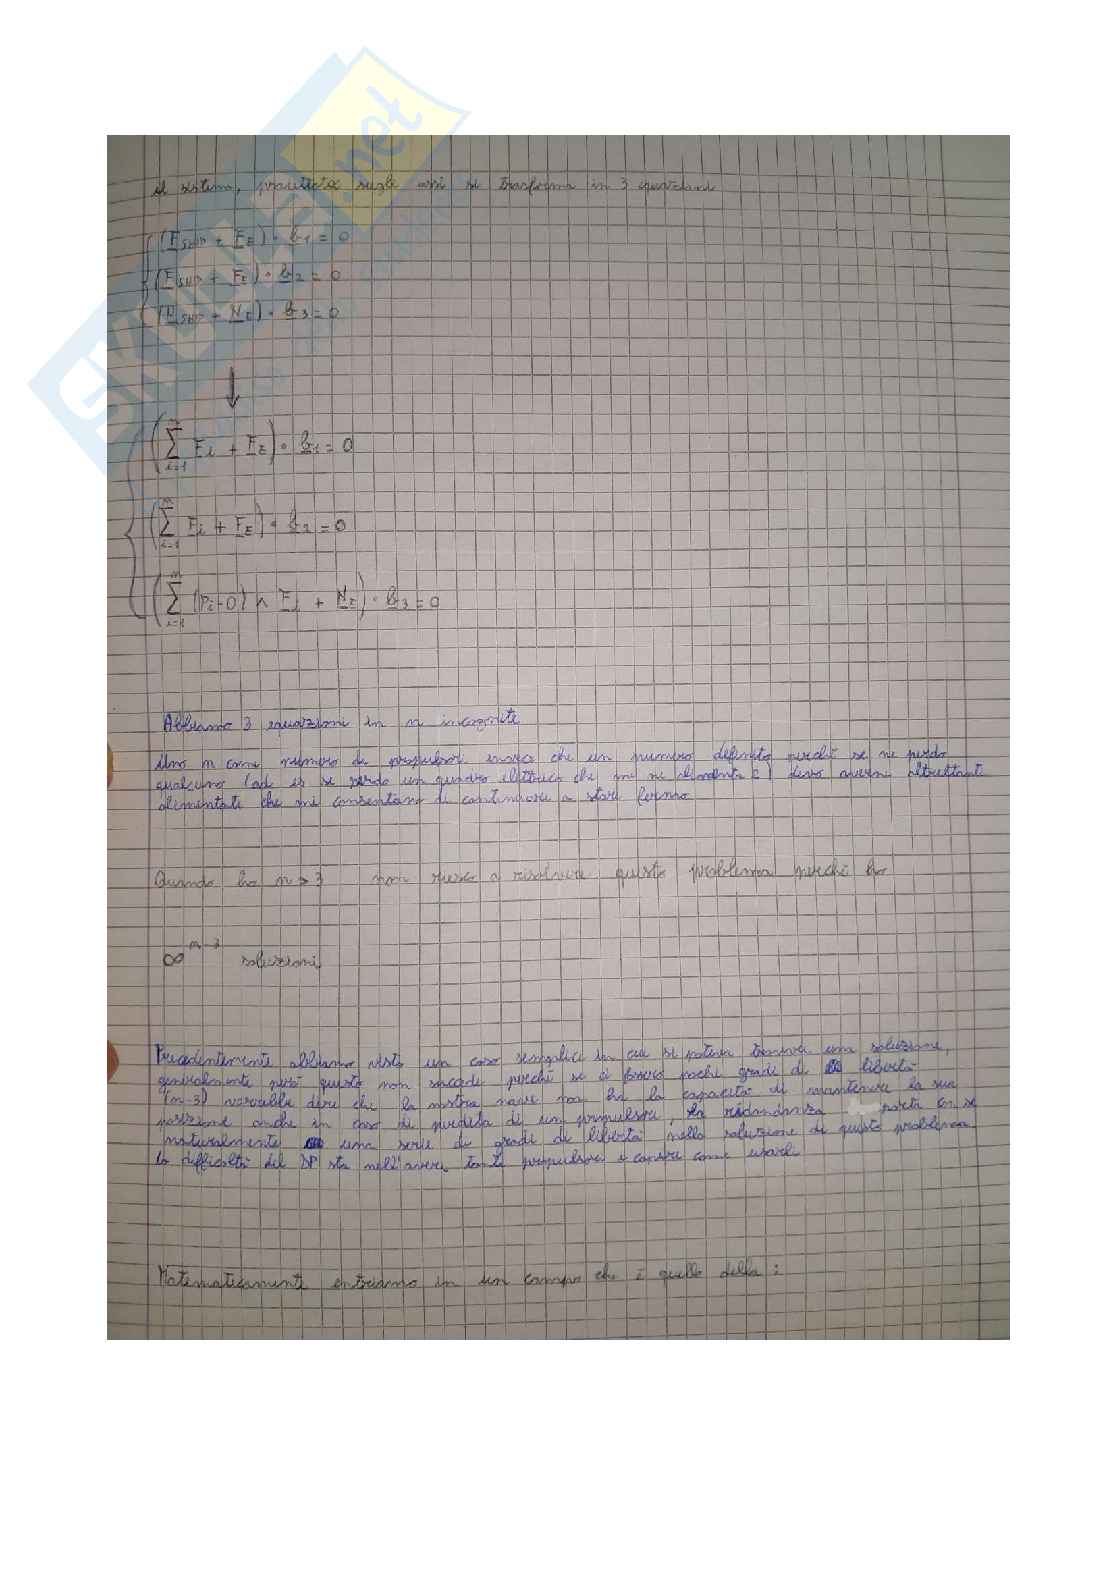 il sistema, proiettato sugli assi si trasforma in 3 equazioni
(F_SUP + F_E) • b_1 = 0
(F_SUP + F_E) • b_2 = 0
(M_SUP + M_E) • b_3 = 0
↓
(∑_{i=1}^{n} F_i + F_E) • b_1 = 0
(∑_{i=1}^{n} F_i + F_E) • b_2 = 0
(∑_{i=1}^{n} (P_i-O) ∧ F_i + M_E) • b_3 = 0
Abbiamo 3 equazioni in n incognite
Uso n come numero di propulsori invece che un numero definito perché se ne perdo
qualcuno (ad es se perdo un quadro elettrico che me ne alimenta 2) devo averne altrettanti
alimentati che mi consentano di continuare a stare fermo
Quando ho n > 3 non riesco a risolvere questo problema perché ho
∞^{n-3} soluzioni
Precedentemente abbiamo visto un caso semplice in cui si poteva trovare una soluzione,
generalmente però questo non succede perché se ci fossero pochi gradi di libertà
(n-3) vorrebbe dire che la nostra nave non ha la capacità di mantenere la sua
posizione anche in caso di perdita di un propulsore, la ridondanza porta in sé
naturalmente una serie di gradi di libertà nella soluzione di questo problema
la difficoltà del DP sta nell'avere tanti propulsori e capire come usarli
Matematicamente entriamo in un campo che è quello della :
SKUOLA.net